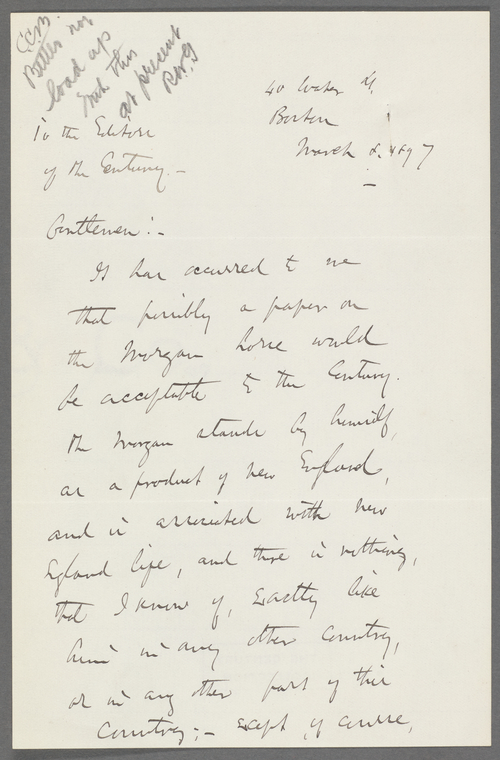 C.C.B.
Better not
load up
with this
at present
R.W.G
40 Water St.
Boston
March 8. 1897
To the Editors
of the Century. -
Gentlemen: -
It has occurred to me
that possibly a paper on
the Morgan horse would
be acceptable to the Century.
The Morgan stands by himself,
as a product of New England,
and is associated with New
England life, and there is nothing,
that I know of, exactly like
him in any other country,
or in any other part of this
country; - except, of course,